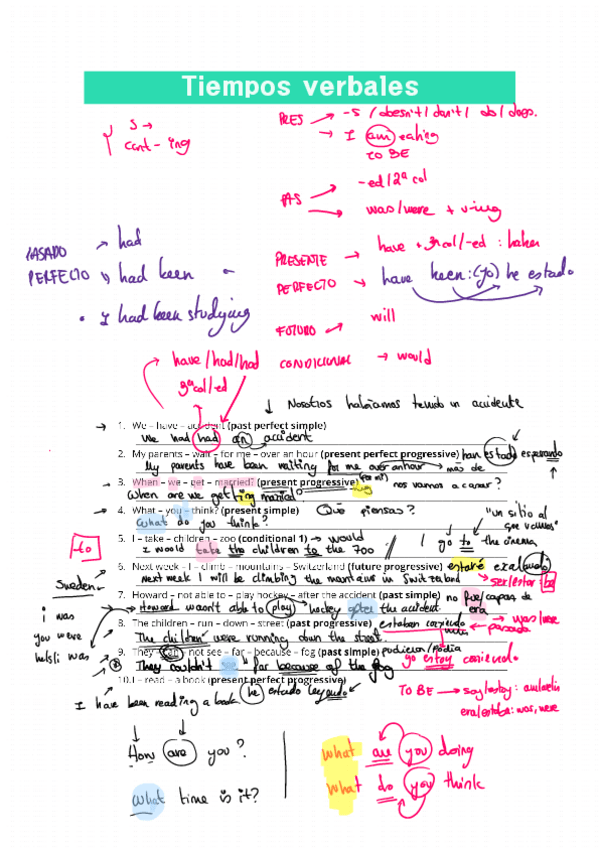 Tiempos verbales
S →
cont - ing
PRES → -s / doesn't / don't / do / does.
→ I am eating
TO BE
PAS → -ed / 2ª col
→ was/were + v-ing
PASADO PERFECTO → had
→ had been
• I had been studying
PRESENTE PERFECTO → have + 3ª col/-ed :
→ have been : (yo) he estado
FUTURO → will
CONDICIONAL → would
have/had/had
3ª col/ed
↓ Nosotros habíamos tenido un accidente
→ 1. We – have – accident (past perfect simple)
We had had an accident
2. My parents – wait – for me – over an hour (present perfect progressive) han estado esperando
My parents have been waiting for me over an hour → más de
→ 3. When – we – get – married? (present progressive) nos vamos a casar?
When are we getting married? ing
→ 4. What – you – think? (present simple) Qué piensas?
What do you think?
"un sitio al que vamos"
5. I – take – children – zoo (conditional 1) → would
I would take the children to the zoo // I go to the cinema
to
6. Next week – I – climb – mountains – Switzerland (future progressive) estaré
Next week I will be climbing the mountains in Switzerland
→ ser/estar: be
Sweden
7. Howard – not able to – play hockey – after the accident (past simple) no fue/capaz de
Howard wasn't able to play hockey after the accident. era
8. The children – run – down – street (past progressive) estaban corriendo
→ was/were
pasado
The children were running down the street.
i was
you were
he/s/i was
9. They – can – not see – far – because – fog (past simple) pudieron/podía
They couldn't see far because of the fog
yo estoy corriendo.
10. I – read – a book (present perfect progressive)
I have been reading a book he estado leyendo
TO BE → soy/estoy :
era/estaba: was, were
How are you?
What time is it?
what are you doing
what do you think